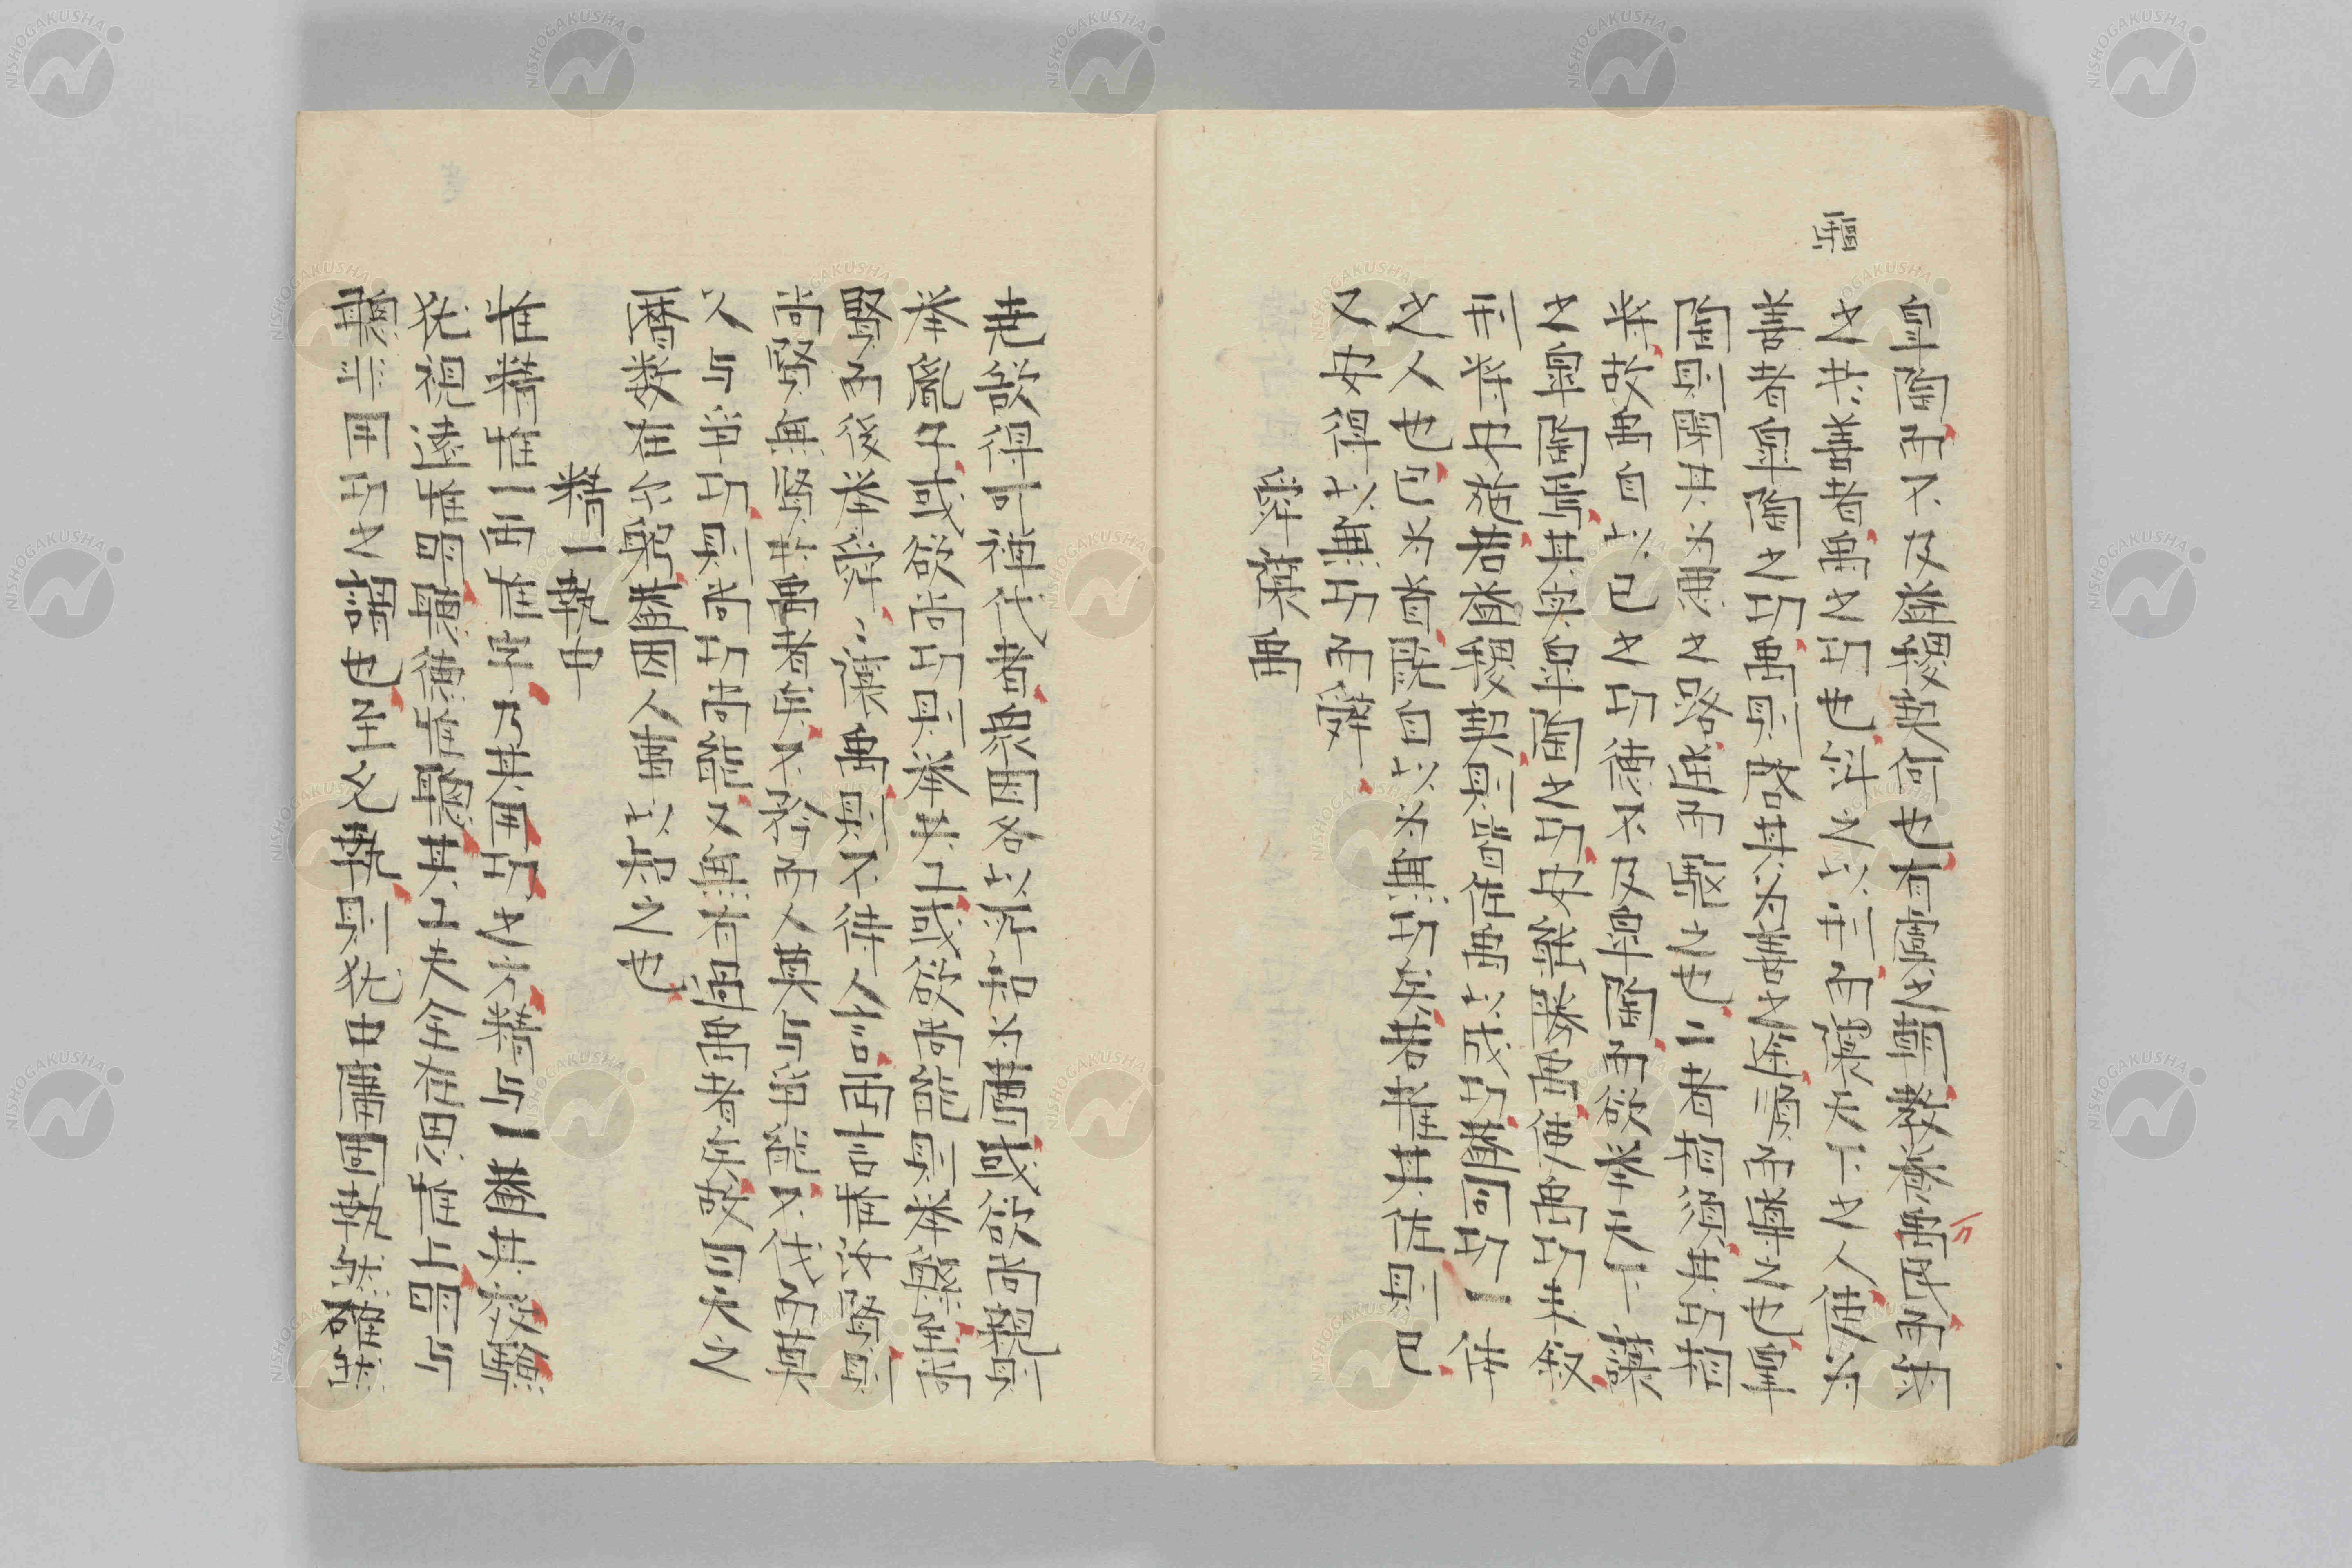 驅
皐陶而不及益稷契何也有虞之朝教益禹咨而命
之共善者禹之功也汻之以刑而讓天下之人使為
善者皐陶之功禹則啓其為善之塗導而導之也皐
陶則閉其為惡之路進而驅之也二者相須其功相
將故禹自以已之功德不及皐陶而欲舉天下讓
之皐陶焉其実皐陶之功何能勝禹使禹功未叙
刑將安施若益稷契則皆佐禹以成功雖同功一体
之人也已為首既自以為無功矣若推其佐則已
又安得以無功而辞
舜讓禹
堯欲得可禅代者衆因各以所知為薦或欲尚親則
挙胤子或欲尚功則挙共工或欲尚能則挙鯀尚
賢而後挙舜〻讓禹則不待人言而言惟汝賢則
尚賢無賢於禹者矣不矜而人莫与争能不伐而莫
人与争功則尚功尚能又無有過禹者矣故曰天之
暦数在尔躬蓋因人事以知之也
精一執中
惟精惟一両惟字乃其用功之方精与一蓋其效驗
犹視遠惟明聽德惟聰其工夫全在思惟上明与
聰非用功之謂也至允執則犹中庸固執然雖然